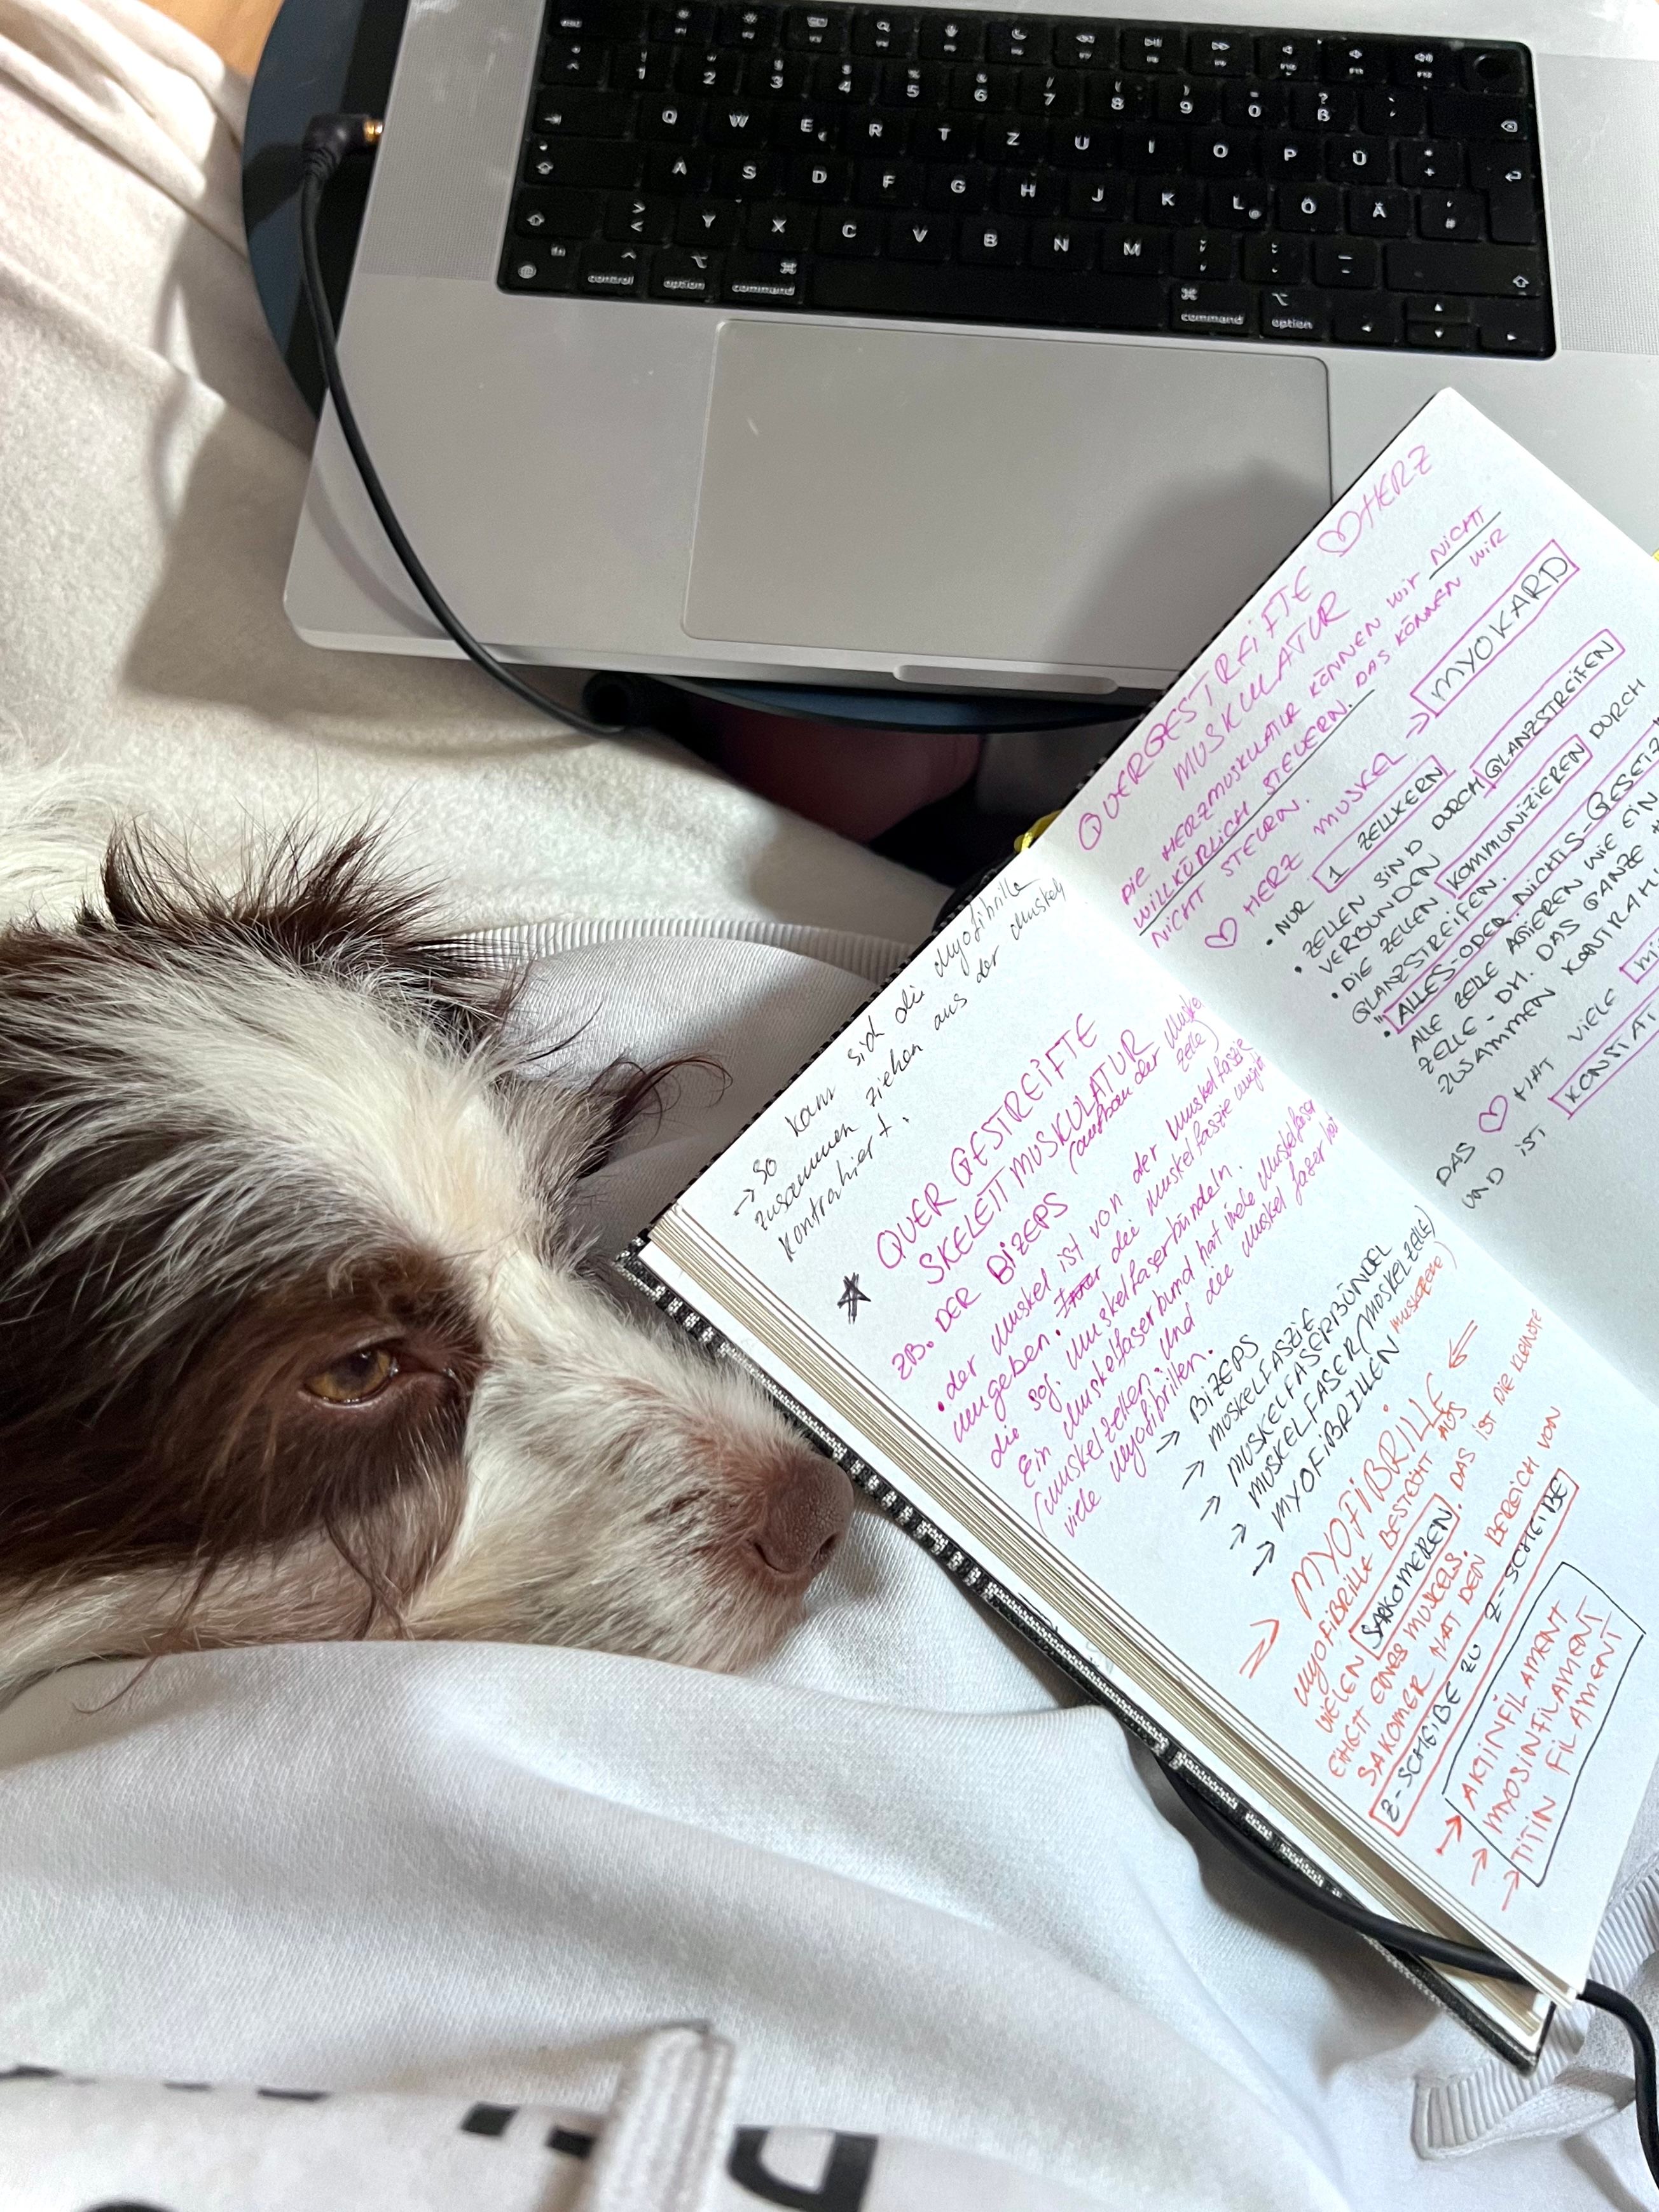 → So kann sich die Myofibrille
zusammen ziehen aus der Muskel
kontrahiert.
QUERGESTREIFTE
SKELETTMUSKULATUR
ZB. DER BIZEPS (Aufbau der Muske
zelle)
• der Muskel ist von der Muskelfaszie
umgeben. die Muskelfaszie umgibt
die sog. Muskelfaserbündeln.
Ein Muskelfaserbund hat viele Muskelfaser
(Muskelzellen. Und die Muskelfaser hat
viele Myofibrillen.
→ BIZEPS
→ MUSKELFASZIE
→ MUSKELFASERBÜNDEL
→ MUSKELFASER (MUSKELZELLE)
→ MYOFIBRILLEN
MYOFIBRILLE
MYOFIBRILLE BESTEHT AUS
VIELEN SARKOMEREN. DAS IST DIE KLEINSTE
EIHEIT EINES MUSKELS.
SAKOMER HAT DEN BEREICH VON
Z-SCHEIBE ZU Z-SCHEIBE
→ AKTINFILAMENT
→ MYOSINFILAMENT
→ TITIN FILAMENT
QUERGESTREIFTE ♡HERZ
MUSKULATUR
DIE HERZMUSKULATUR KÖNNEN WIR NICHT
WILLKÜRLICH STEUERN. DAS KÖNNEN WIR
NICHT STEUERN.
♡ HERZ MUSKEL → MYOKARD
• NUR 1 ZELLKERN
• ZELLEN SIND DURCH GLANZSTREIFEN
VERBUNDEN
• DIE ZELLEN KOMMUNIZIEREN DURCH
GLANZSTREIFEN.
• "ALLES-ODER-NICHTS-GESETZ
ALLE ZELLE AGIEREN WIE EIN
ZELLE - DH. DAS GANZE
ZUSAMMEN KONTRAHI
DAS ♡ HAT VIELE
UND IST KONSTAT
esc
1 2 3 4 5 6 7 8 9 0 ß
Q W E R T Z U I O P Ü
A S D F G H J K L Ö Ä
Y X C V B N M
fn control option command command option